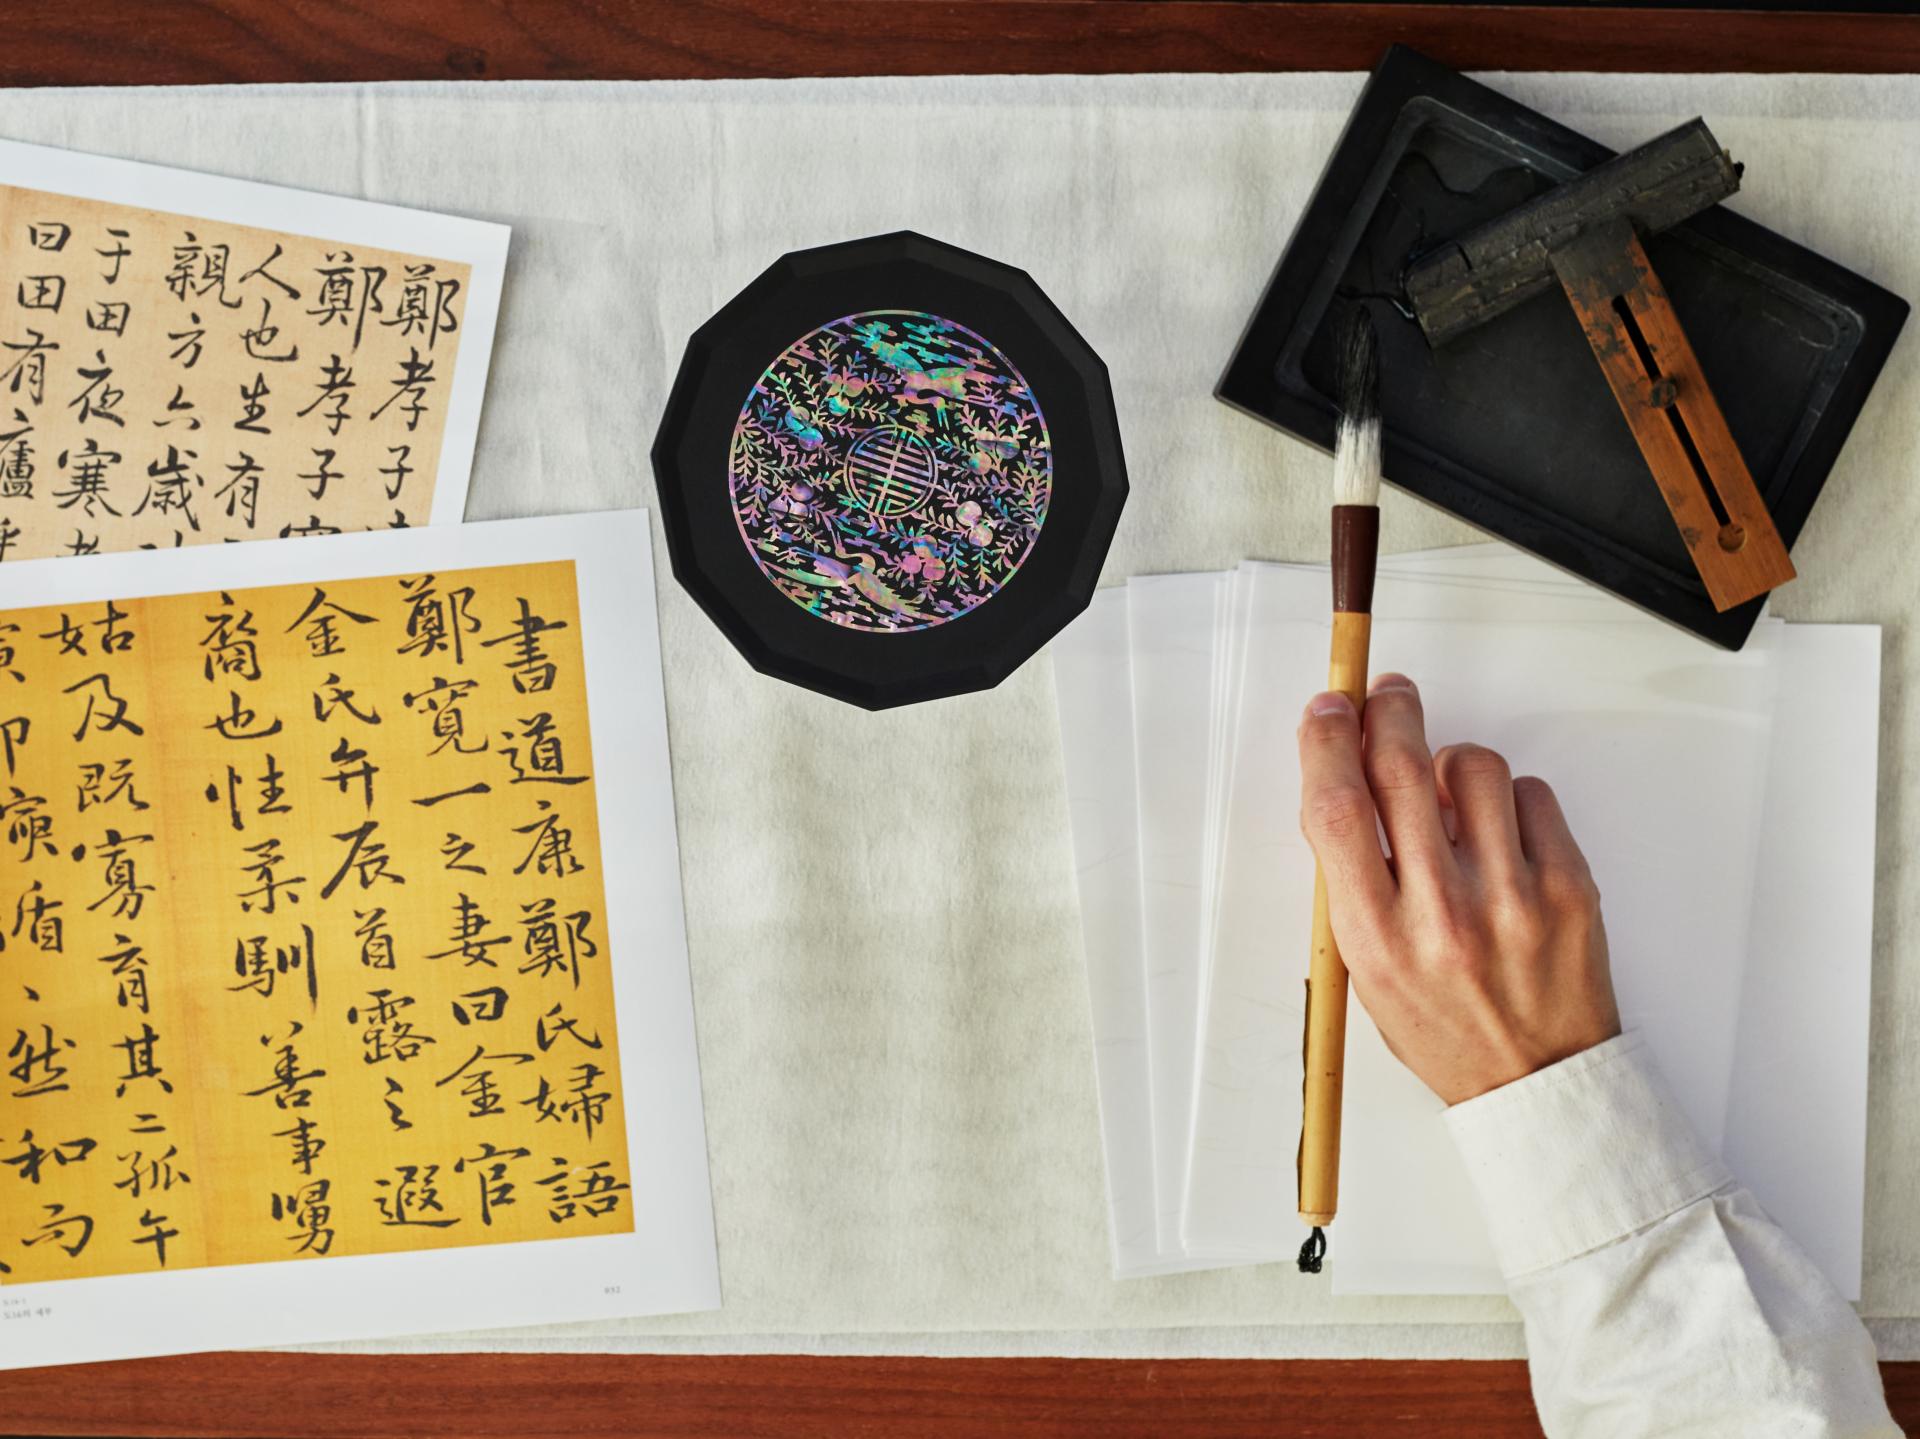 鄭孝子
鄭孝子
人也生有
親方六歲
于田夜寒
曰田有廬
書道康鄭氏婦語
鄭寬一之妻曰金官
金氏弁辰首露之遐
裔也性柔馴善事舅
姑及既寡育其二孤午
盾、然和而
도16의 세부
032